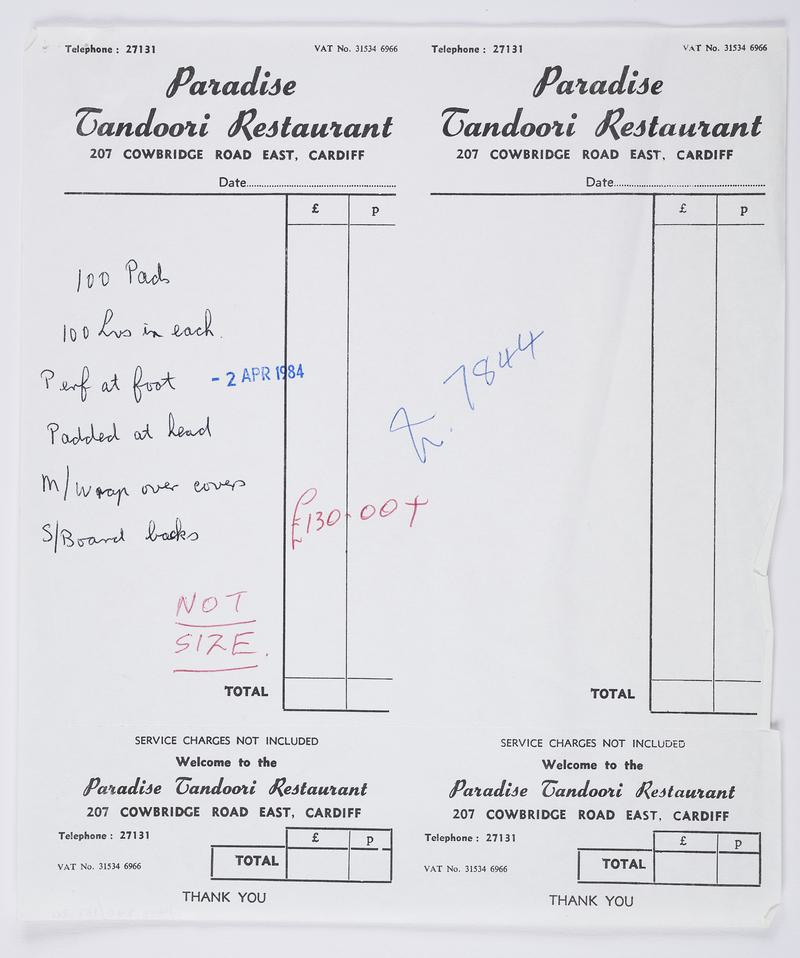 Telephone : 27131 VAT No. 31534 6966
Paradise
Tandoori Restaurant
207 COWBRIDGE ROAD EAST, CARDIFF
Date
£ p
100 Pads
100 lvs in each.
Perf at foot - 2 APR 1984
Padded at head
M/Wrap over covers
S/Board backs
£130.00 +
NOT
SIZE.
TOTAL
SERVICE CHARGES NOT INCLUDED
Welcome to the
Paradise Tandoori Restaurant
207 COWBRIDGE ROAD EAST, CARDIFF
Telephone : 27131
£ p
VAT No. 31534 6966
TOTAL
THANK YOU
Telephone : 27131 VAT No. 31534 6966
Paradise
Tandoori Restaurant
207 COWBRIDGE ROAD EAST, CARDIFF
Date
£ p
7844
TOTAL
SERVICE CHARGES NOT INCLUDED
Welcome to the
Paradise Tandoori Restaurant
207 COWBRIDGE ROAD EAST, CARDIFF
Telephone : 27131
£ p
VAT No. 31534 6966
TOTAL
THANK YOU